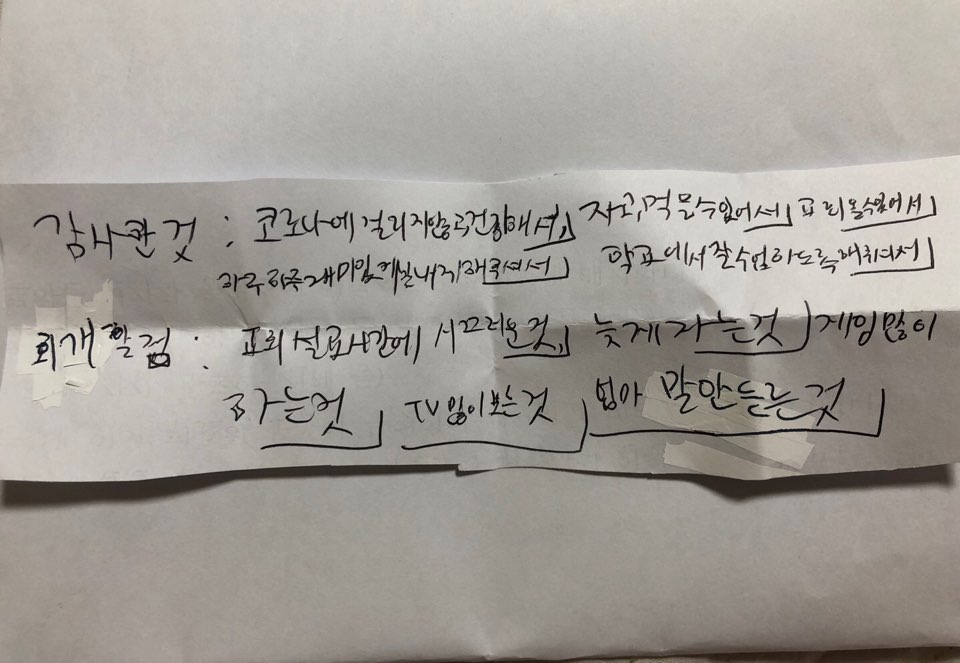 감사한 것 : 코로나에 걸리지않고 건강해서, 자고, 먹을수있어서 교회올수있어서
하루하루 재미있게 보내게해주셔서 학교에서 잘수업하도록해주셔서
회개할점 : 교회 설교시간에 시끄러운것, 늦게자는것 게임많이
하는것 TV많이보는것 엄마 말안듣는것